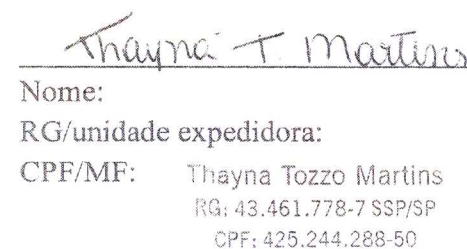 Thayná T. Martins
Nome:
RG/unidade expedidora:
CPF/MF: Thayna Tozzo Martins
RG: 43.461.778-7 SSP/SP
CPF: 425.244.288-50